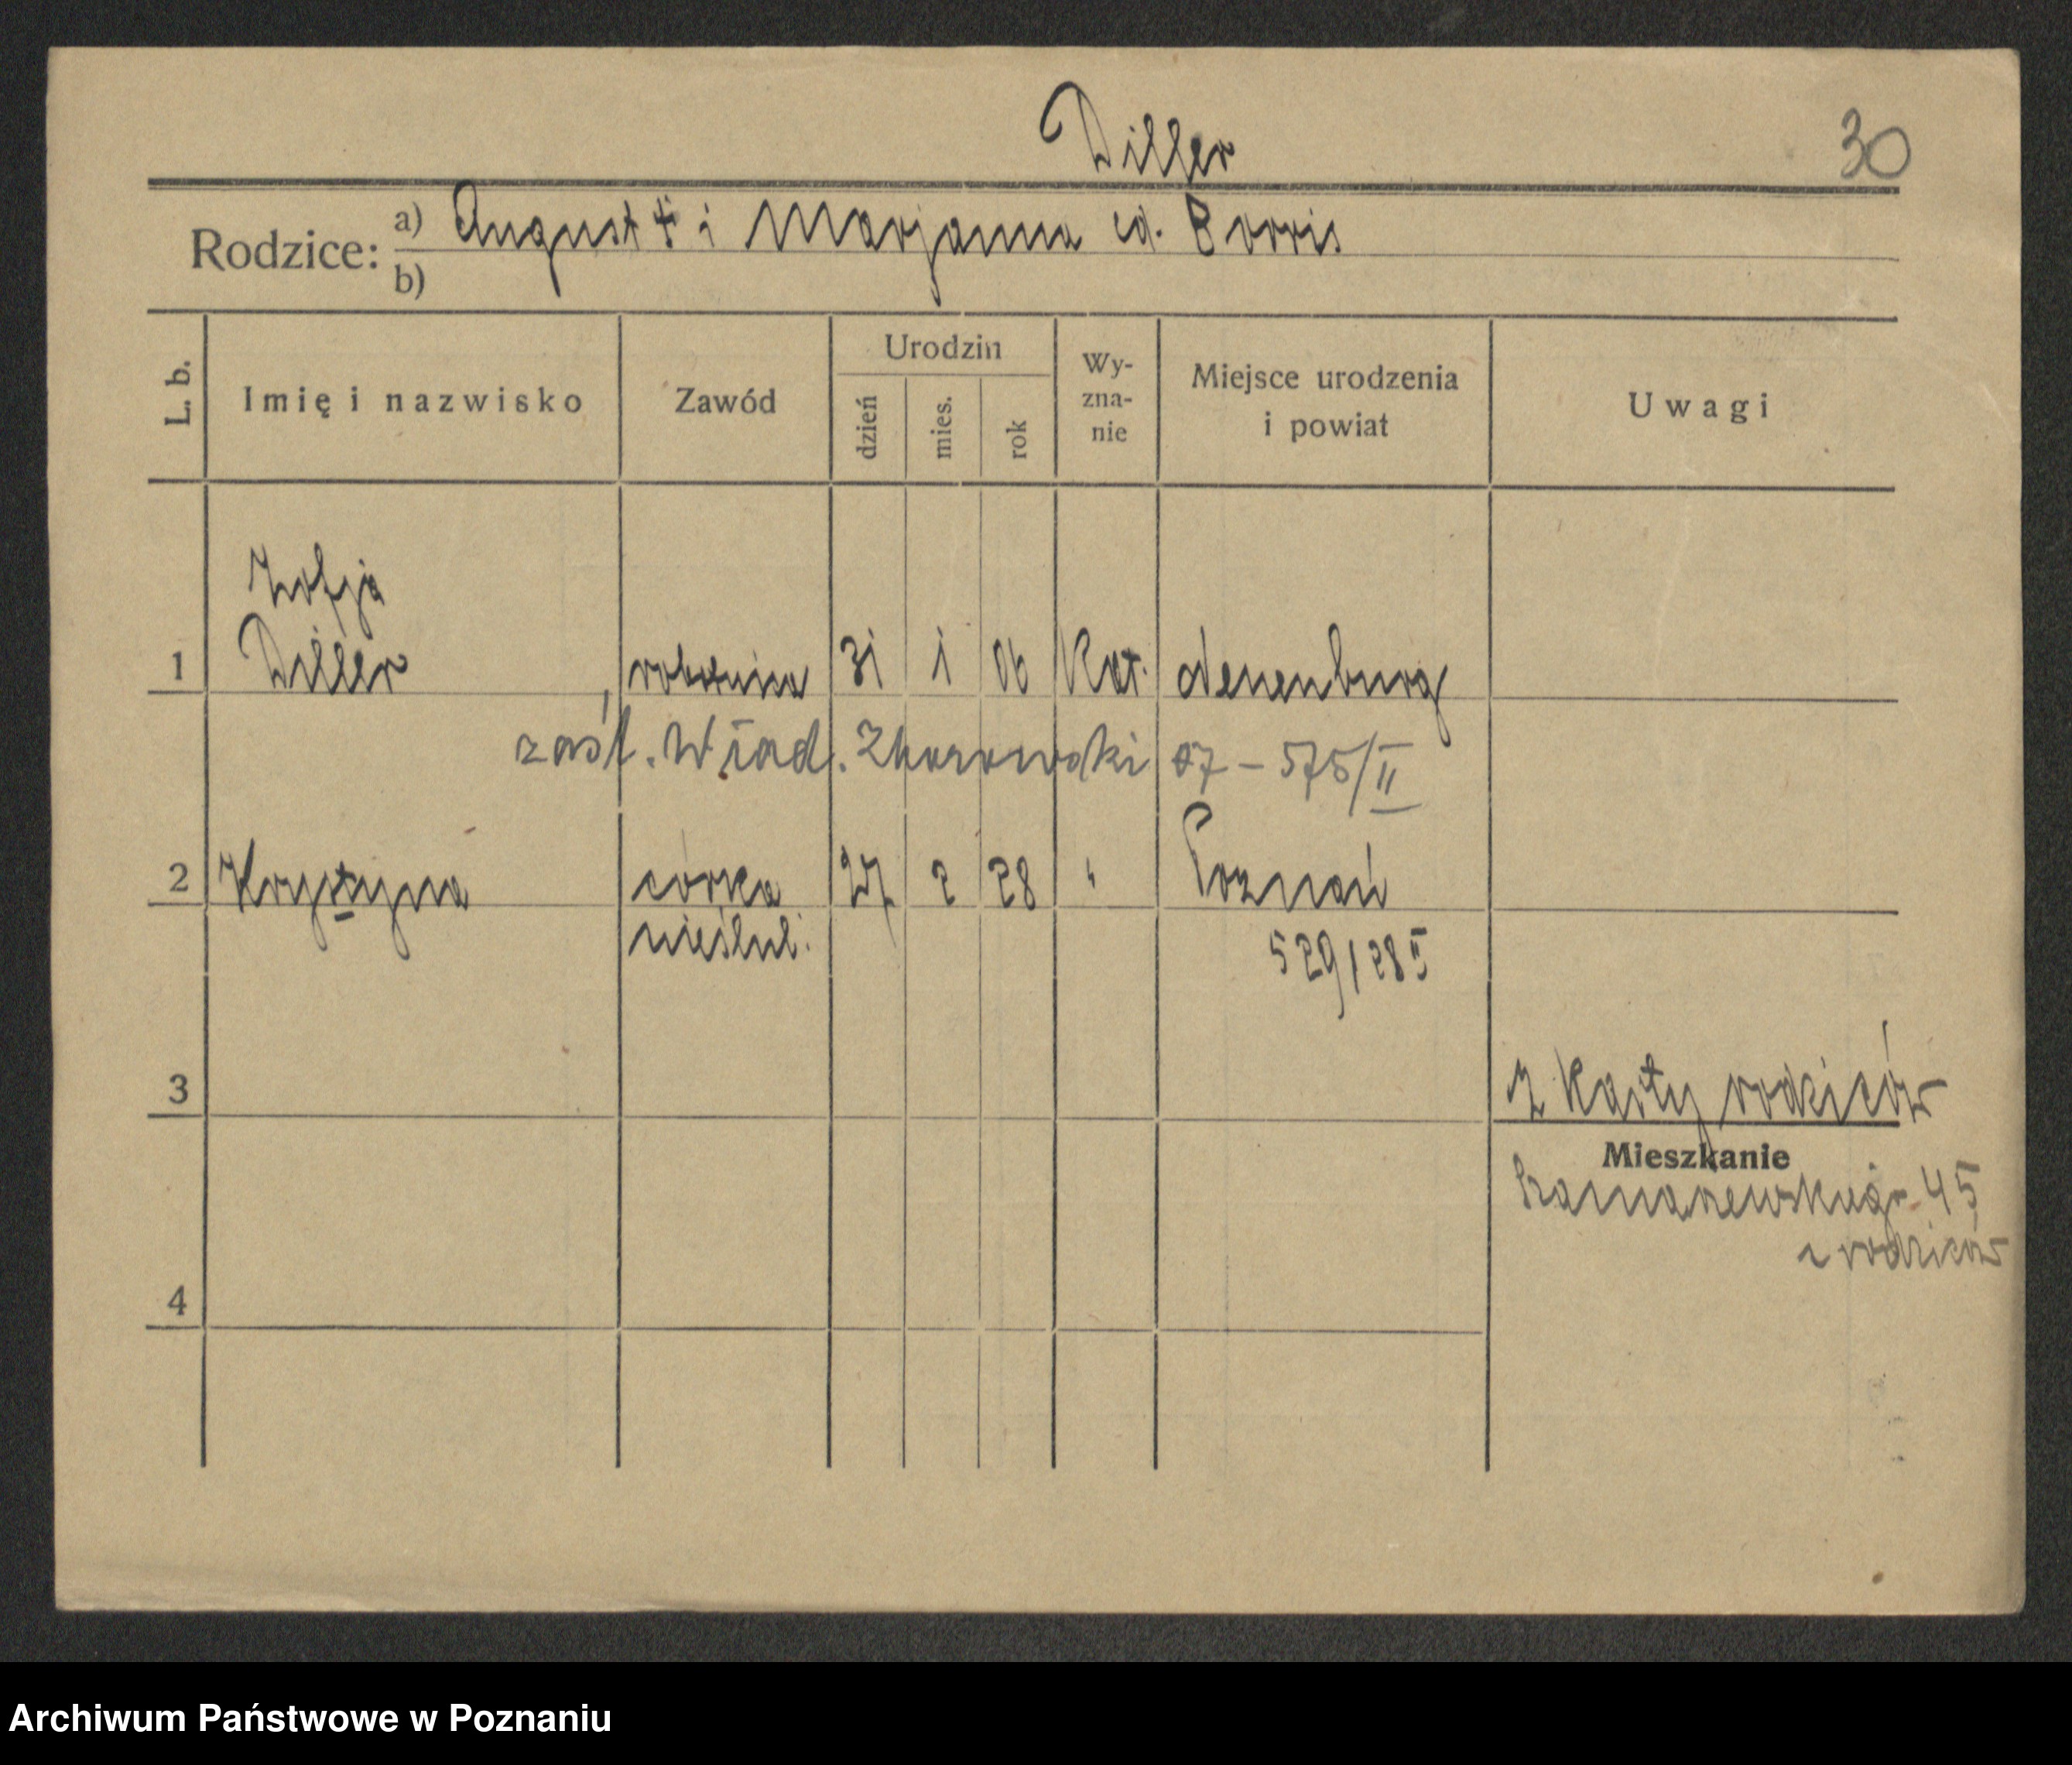 Diller
30
Rodzice: a) August † i Marjanna cd. Borris
b)
L. b. Imię i nazwisko Zawód Urodzin dzień mies. rok Wy-zna-nie Miejsce urodzenia i powiat Uwagi
Zofja
1 Diller robotnica 31 1 06 Kat. Neuenburg
zaśl. Wład. Zborowski 07 – 575/II
2 Krystyna córka 27 2 28 " Poznań
nieślub. 529/28 II
3 Z Karty rodziców
Mieszkanie
Szamarzewskiego 45
z rodziców
4
Archiwum Państwowe w Poznaniu